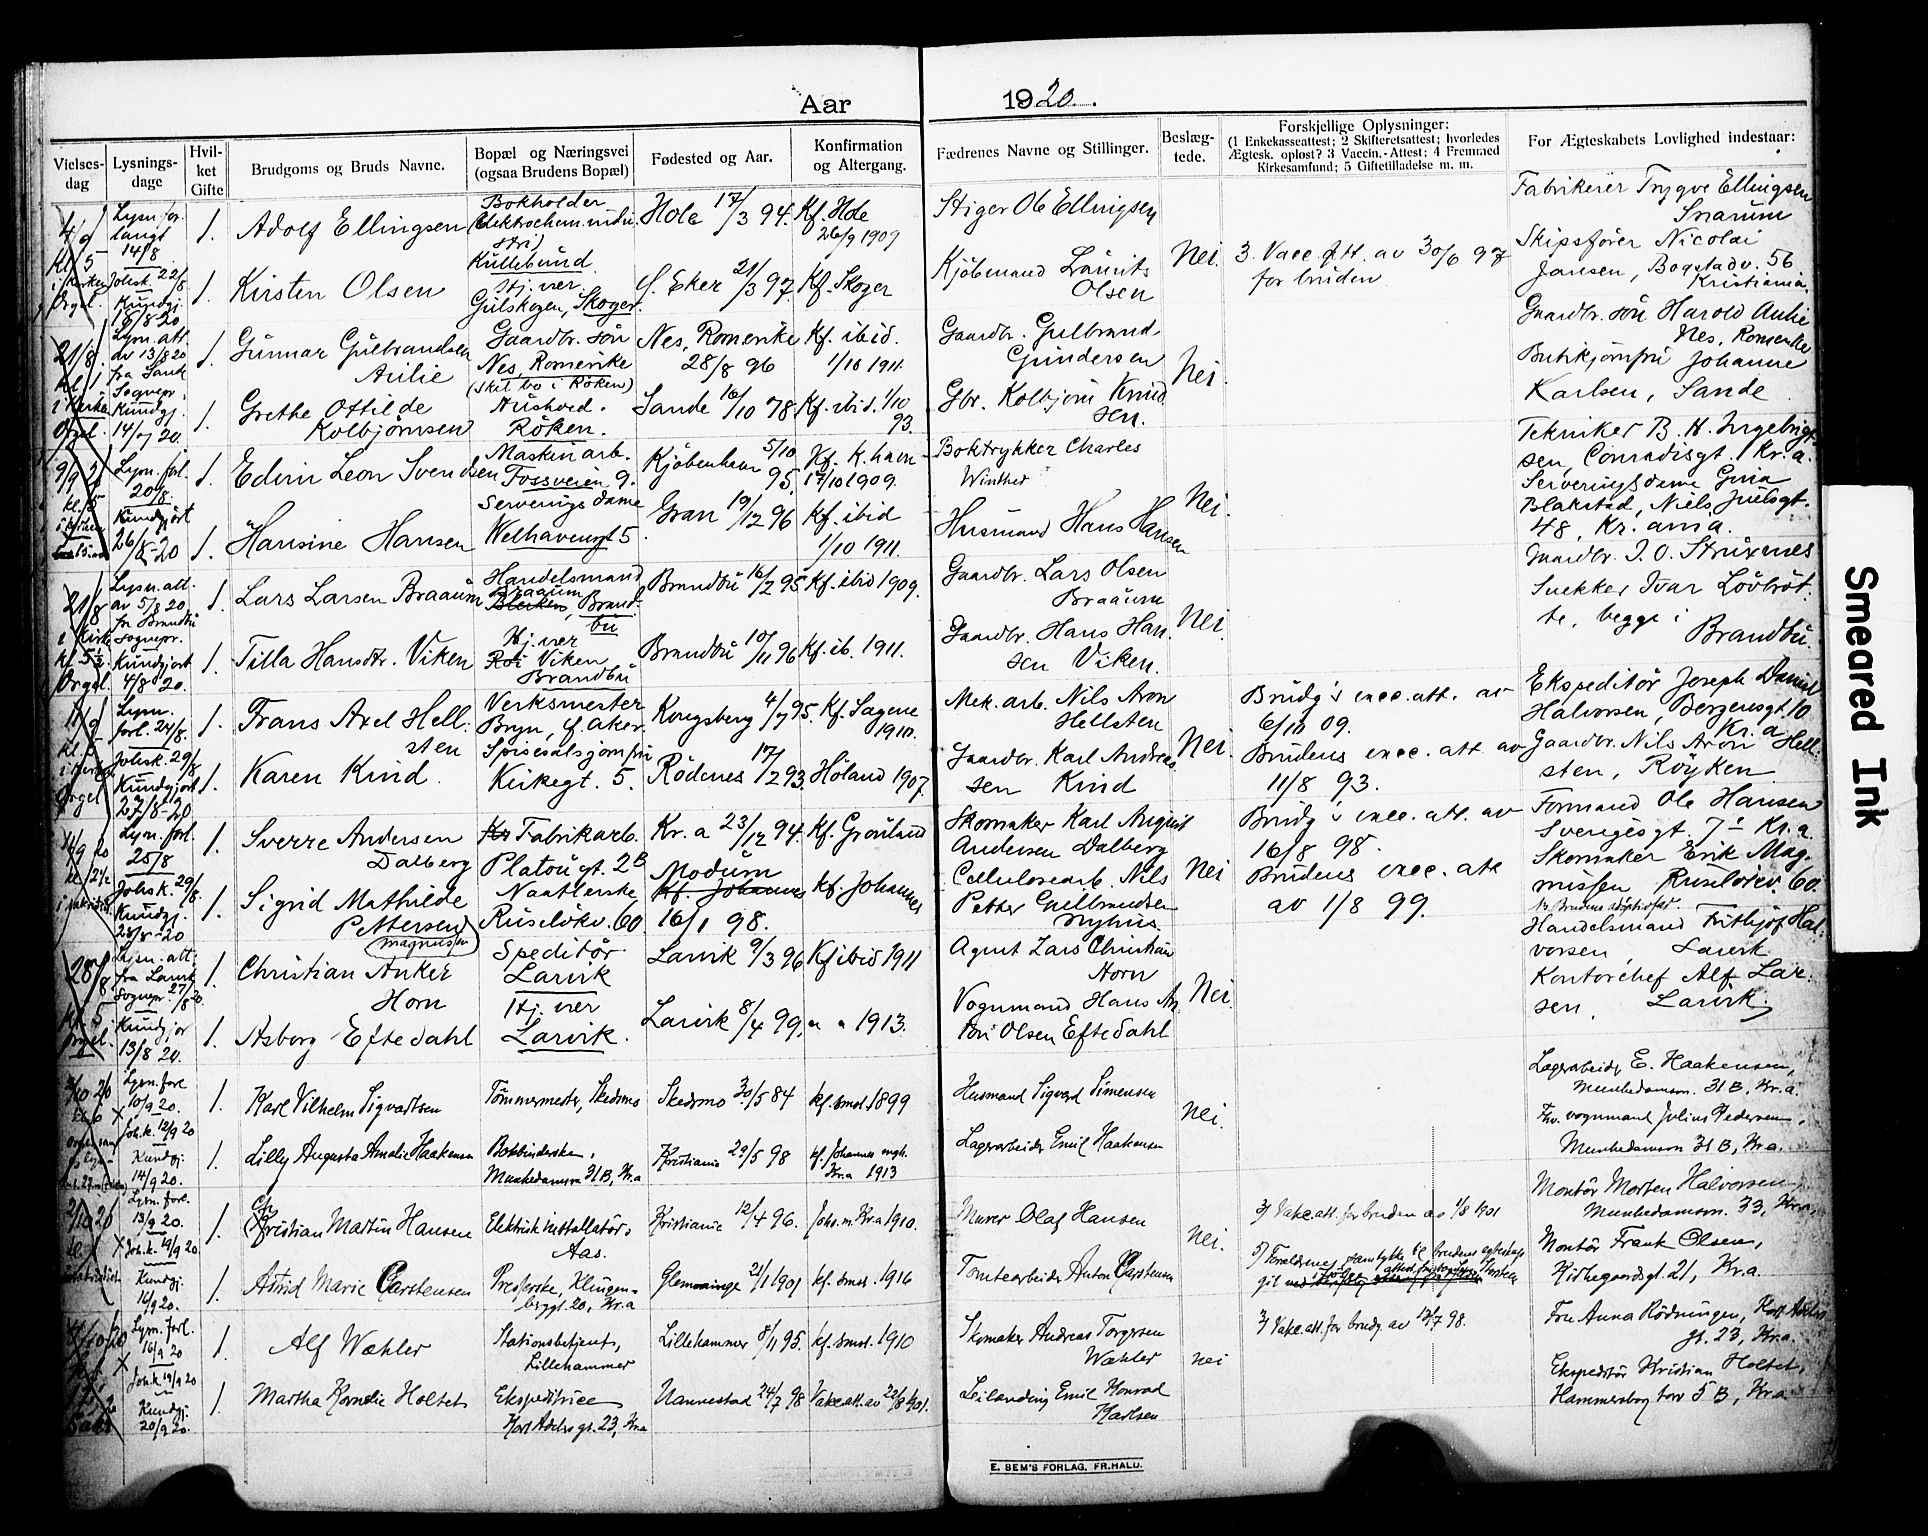 Aar 1920.
Vielses-dag
Lysnings-dage
Hvil-ket Gifte
Brudgoms og Bruds Navne.
Bopæl og Næringsvei (ogsaa Brudens Bopæl)
Fødested og Aar.
Konfirmation og Altergang.
Fædrenes Navne og Stillinger.
Beslæg-tede.
Forskjellige Oplysninger:
(1 Enkekasseattest; 2 Skifteretsattest; hvorledes
Ægtesk. opløst? 3 Vaccin.-Attest; 4 Fremmed
Kirkesamfund; 5 Giftetilladelse m. m.
For Ægteskabets Lovlighed indestaar:
4/9 kl. 5
Lysn. for. langt 14/8
1. Adolf Ellingsen
Bokholder
Kullebund.
Hole 17/3 94.
Kf. Hole 26/9 1909
Stiger Ole Ellingsen
Nei.
3. Vacc. att. av 30/6 97
for bruden
Fabrikeier Trygve Ellingsen
Snarum
Johsk. 22/8
Kundgj. 18/8-20
1. Kirsten Olsen
Hj. ver
Gulskogen, Skoger.
S. Eker 21/3 97
Kf. Skoger
Kjøbmand Laurits
Olsen
Skipsfører Nicolai
Jansen, Bogstadv. 56
Kristiania.
21/8 kl. 1
Lysn. att. av 13/8 20 fra Sande Sognepr.
1. Gunnar Gulbrandsen
Aulie
Gaardbr. søn
Nes, Romerike
(skal bo i Røken)
Nes, Romerike
28/8 96
Kf. ibid.
1/10 1911.
Gaardbr. Gulbrand
Gundersen
Nei.
Gaardbr. søn Harold Aulie
Nes, Romerike
Kundgj. 14/9 20.
1. Grethe Ottilde
Kolbjørnsen
Røken.
Sande 16/10 78
Kf. ibid. 1/10 93.
Gbr. Kolbjørn Knud
sen.
Butikjomfru Johanne
Karlsen, Sande
9/9 20 kl. 5
Lysn. forl. 20/8.
1. Edvin Leon Svendsen
Maskinarb.
Fossveien 9.
Kjøbenhavn 5/10 95.
Kf. K.havn
17/10 1909.
Boktrykker Charles
Winther
Nei.
Tekniker B. H. Ingebrigt
sen, Conradisgt. 1 Kr.a.
Kundgjort 26/8-20
1. Hansine Hansen
Serveringsdame
Welhavensgt 5
Gran 19/12 96
Kf. ibid
1/10 1911.
Husmand Hans Hansen
Serveringsdame Gina
Blakstad, Niels Juelsgt.
48, Kr.ania.
21/8 i Kirk. kl. 5½ Orgel.
Lysn. att. av 5/8 20. fra Brandbu sognepr.
1. Lars Larsen Braaum
Handelsmand
Braaum
Brand-
bu
Brandbu 16/2 95
Kf. ibid 1909.
Gaardbr. Lars Olsen
Braaum
Nei.
Gaardbr. J. O. Struxnes
Snekker Ivar Løvbrøt
te, begge i
Brandbu.
Kundgjort 4/8 20.
1. Tilla Hansdtr. Viken
Hj. ver
Viken
Brandbu
Brandbu 10/11 96
Kf. ib. 1911.
Gaardbr. Hans Han
sen Viken.
11/9 kl. 5
Lysn. forl. 24/8.
1. Frans Axel Hell-
sten
Verksmester
Bryn, Ø. Aker.
Kongsberg 4/7 95.
Kf. Sagene
1910.
Mek. arb. Nils Aron
Hellsten
Nei.
Brudg's vacc. att. av
6/10 09.
Ekspeditør Joseph Daniel
Halvorsen, Bergensgt 10
Kr.a
Johsk. 29/8
Kundgjort 27/8-20
1. Karen Kind.
Spisesalsjomfru
Kirkegt. 5.
Rødenes 17/2 93.
Høland 1907.
Gaardbr. Karl Andrea
sen Kind
Brudens vacc. att. av
11/8 93.
Gaardbr. Nils Aron Hell-
sten, Røyken
11/9 20
Lysn. forl. 25/8
1. Sverre Andersen
Dalberg
Fabrikarb.
Platougt. 2B
Kr.a 23/12 94.
Kf. Grønland
Skomaker Karl August
Andersen Dalberg
Nei
Brudg's vacc. att. av
16/8 98.
Formand Ole Hansen
Sverigesgt. 7 Kr.a
Johsk. 29/8.
Kundgj. 28/8-20
1. Sigrid Mathilde
Pettersen
(magnussen)
Ruseløkv. 60
Modum
16/1 98.
Kf. Johannes
Cellulosearb. Nils
Petter Gulbrandsen
Nyhus.
Brudens vacc. att
av 1/8 99.
Skomaker Erik Mag-
nussen Ruseløkv. 60.
28/8 kl. 5. Orgel.
Lysn. att. fra Larvik Sognepr. 27/8 20.
1. Christian Anker
Horn
Speditør
Larvik
Larvik 9/3 96
Kf ibid 1911
Agent Lars Christian
Horn
Nei.
Handelsmand Fritjof Hal-
vorsen, Larvik
Kundgjor 13/8 20.
1. Asborg Eftedahl
Hj. ver
Larvik.
Larvik 8/4 99.
" " 1913.
Vognmand Hans An
ton Olsen Eftedahl
Kontorchef Alf Lar-
sen, Larvik.
2/10 20
Lysn. forl. 10/9 20.
1. Karl Vilhelm Sigvartsen
Tømmermester, Skedsmo
Skedsmo 30/5 84
kf. smst. 1899
Husmand Sigvard Simensen
Nei.
Lagerarbeider E. Haakensen,
Munkedamsv. 31 B, Kr.a.
Joh.k. 12/9 20
Kundgj. 14/9 20.
1. Lilly Augusta Amalie Haakensen
Bokbinderske,
Munkedamsv. 31 B, Kr.a
Kristiania 29/5 98
kf. Johannes mgh.
Kr.a 1913
Lagerarbeider Emil Haakensen
Fhv. vognmand Julius Pedersen,
Munkedamsv 31 B, Kr.a.
2/10 20
Lysn. forl. 13/9 20.
1. Christian Martin Hansen
Elektrisk installatør,
Aas.
Kristiania 12/4 96.
Joh.s m. Kr.a 1910.
Murer Olaf Hansen
Nei.
3) Vakc. att. for bruden av 1/8 1901
Montør Morten Halvorsen
Munkedamsv. 33, Kr.a.
Joh.k. 19/9 20
Kundgj. 16/9 20.
1. Astrid Marie Carstensen
Presserske, Klingen-
berggt. 20, Kr.a
21/1 1901
kf. smst. 1916
Tomtearbeider Anton Carstensen
5) Forældrenes samtykke til brudens egteskap
Montør Frank Olsen,
Kirkegaardsgt. 21, Kr.a.
Lysn. forl. 16/9 20
1. Alf Wæhler
Stationsbetjent,
Lillehammer
Lillehammer 8/11 95.
kf. smst. 1910
Skomaker Andreas Torgersen
Wæhler
nei
3) Vakc. att. for brudg. av 13/7 98.
Fru Anna Rødningen, Kort Adelers
gt. 23, Kr.a.
Joh.k. 19/9 20
Kundgj. 20/9 20.
1. Martha Kornelie Holtet
Ekspeditrice
Kort Adelers gt. 23, Kr.a
Nannestad 24/7 98
Vakc. att. av 22/8 1901.
Leilænding Emil Konrad
Karlsen
Ekspeditør Kristian Holtet,
Hammersborg torv 5 B, Kr.a
E. SEM'S FORLAG, FR.HALD.
Smeared Ink